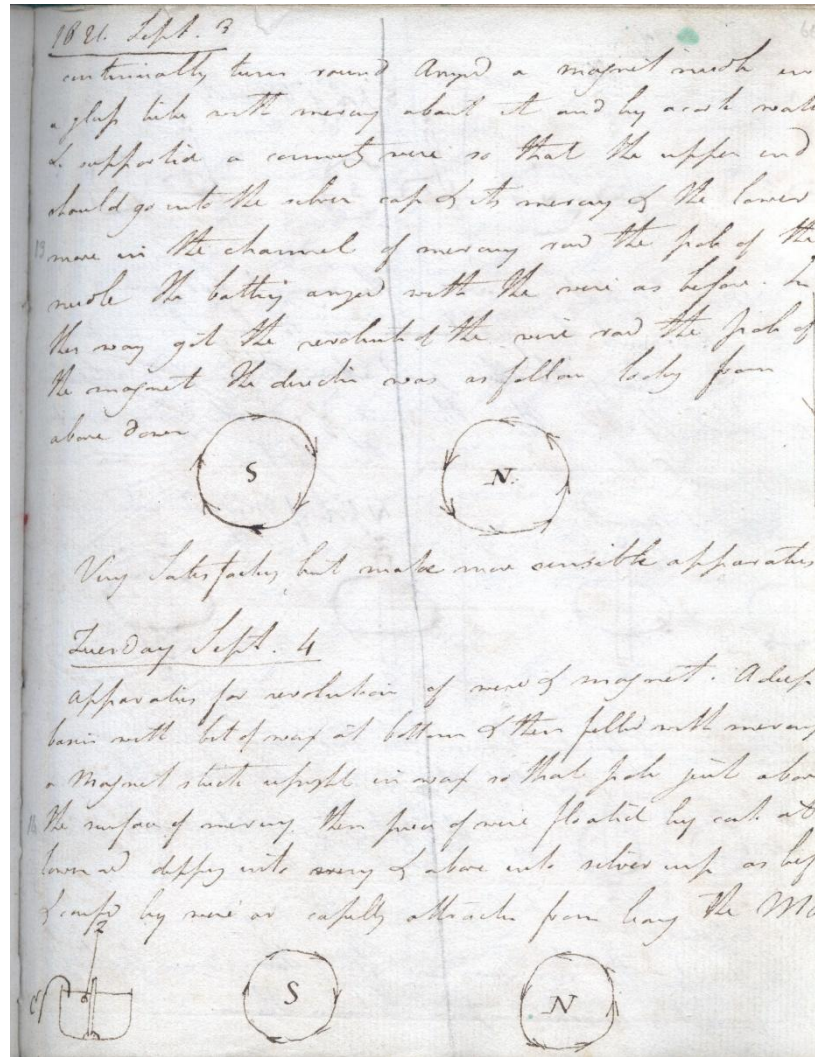 1821. Sept. 3
continually turns round. Arranged a magnet needle in
a glass tube with mercury about it and by a cork water
& supported a connecting wire so that the upper end
should go into the silver cup & its mercury & the lower
move in the channel of mercury round the pole of the
needle the battery arranged with the wire as before. In
this way got the revolution of the wire round the pole of
the magnet the direction was as follow looking from
above down
S N
Very Satisfactory, but make more sensible apparatus
Tuesday Sept. 4
Apparatus for revolution of wire & magnet. A deep
basin with bit of wax at bottom & then filled with mercury
a Magnet stuck upright in wax so that pole just above
the surface of mercury then piece of wire floated by cork at
lower end dipping into mercury & above into silver cup as bef
& by wire or attraction from leavg the M
Z
C
S N